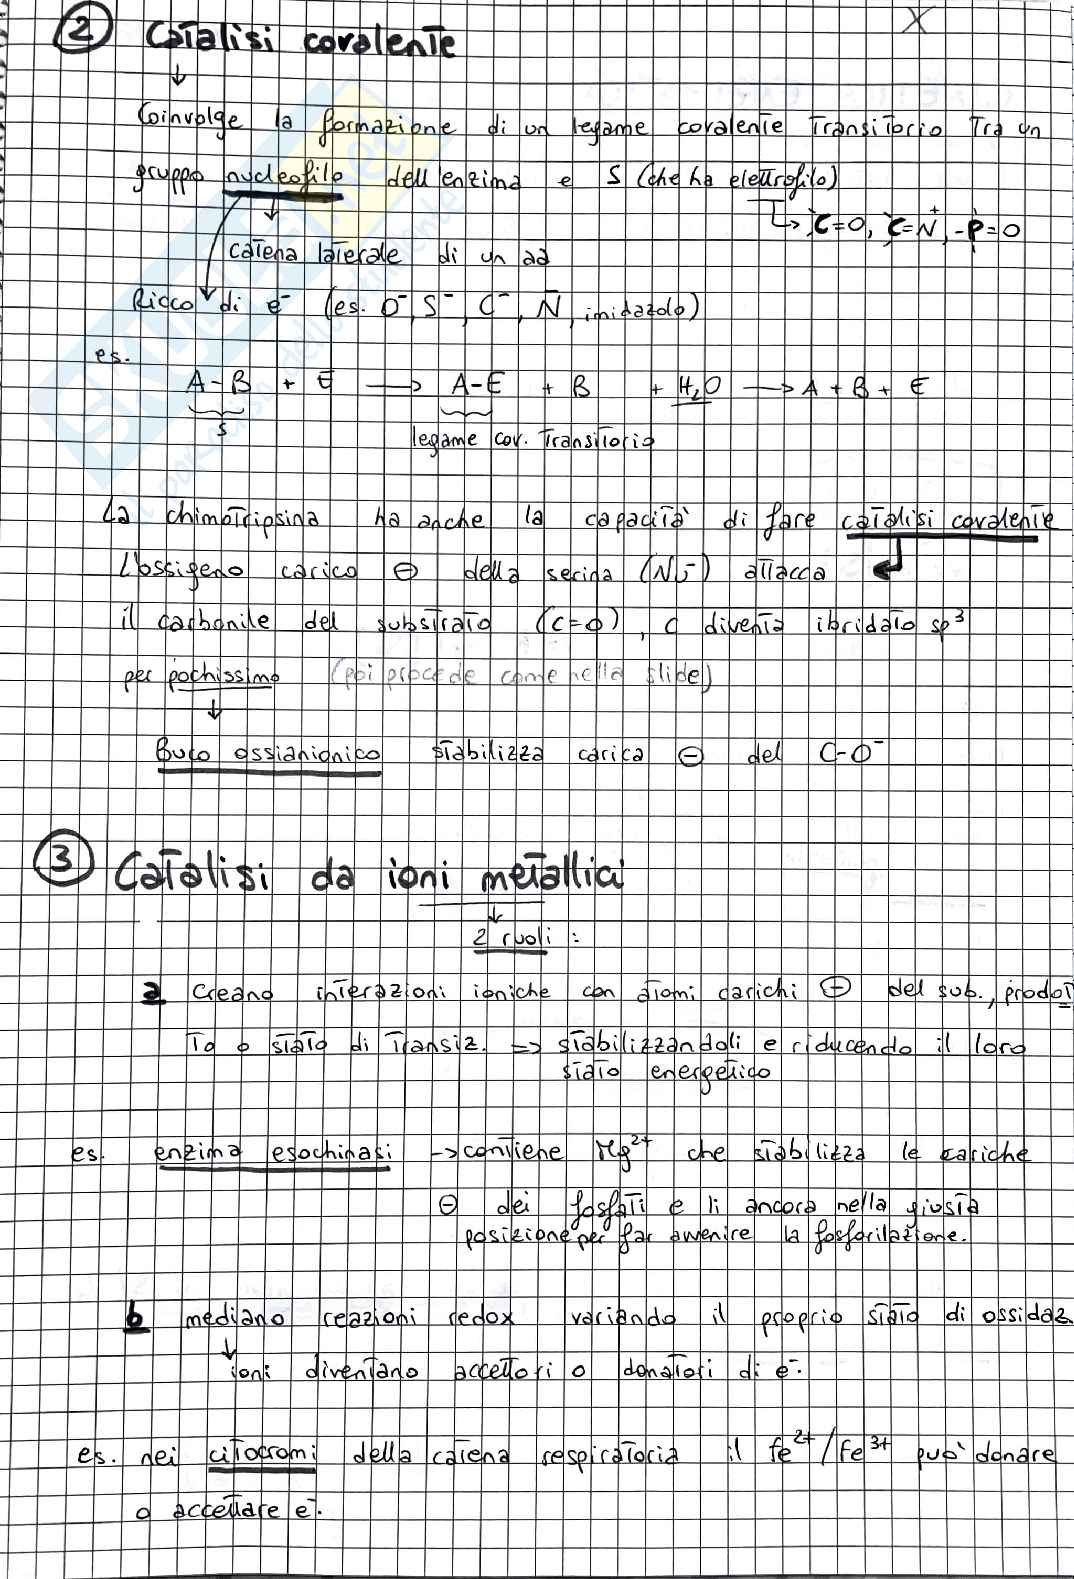 ② Catalisi covalente
↓
Coinvolge la formazione di un legame covalente transitorio tra un
gruppo nucleofilo dell'enzima e S (che ha elettrofilo)
↓ ↳ C=O, C=N⁺, -P=O
catena laterale di un aa
Ricco di e⁻ (es. O⁻, S⁻, C⁻, N̄, imidazolo)
es.
A-B + E → A-E + B + H₂O → A + B + E
S
legame cov. transitorio
La chimotripsina ha anche la capacità di fare catalisi covalente
L'ossigeno carico ⊖ della serina (Nu⁻) attacca
il carbonile del substrato (C=O), C diventa ibridato sp³
per pochissimo (poi procede come nella slide)
↓
Buco ossianionico stabilizza carica ⊖ del C-O⁻
③ Catalisi da ioni metallici
↓
2 ruoli:
a creano interazioni ioniche con atomi carichi ⊖ del sub., prodot
to o stato di transiz. => stabilizzandoli e riducendo il loro
stato energetico
es. enzima esochinasi -> contiene Mg²⁺ che stabilizza le cariche
⊖ dei fosfati e li ancora nella giusta
posizione per far avvenire la fosforilazione.
b mediano reazioni redox variando il proprio stato di ossidaz.
↓
ioni diventano accettori o donatori di e⁻.
es. nei citocromi della catena respiratoria il Fe²⁺/Fe³⁺ può donare
o accettare e⁻.